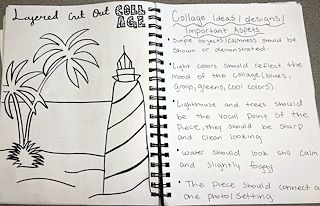 Layered Cut Out COLL
AGE
Collage Ideas/designs/
Important Aspets
• Simple objects (calmness) should be
shown or demonstrated.
• Light colors should reflect the
mood of the collage (blues,
grays, greens, cool colors).
• Lighthouse and trees should
be the vocal point of the
piece, they should be sharp
and clean looking
• Water should look still calm
and slightly foggy.
• The piece should connect as
one photo/setting